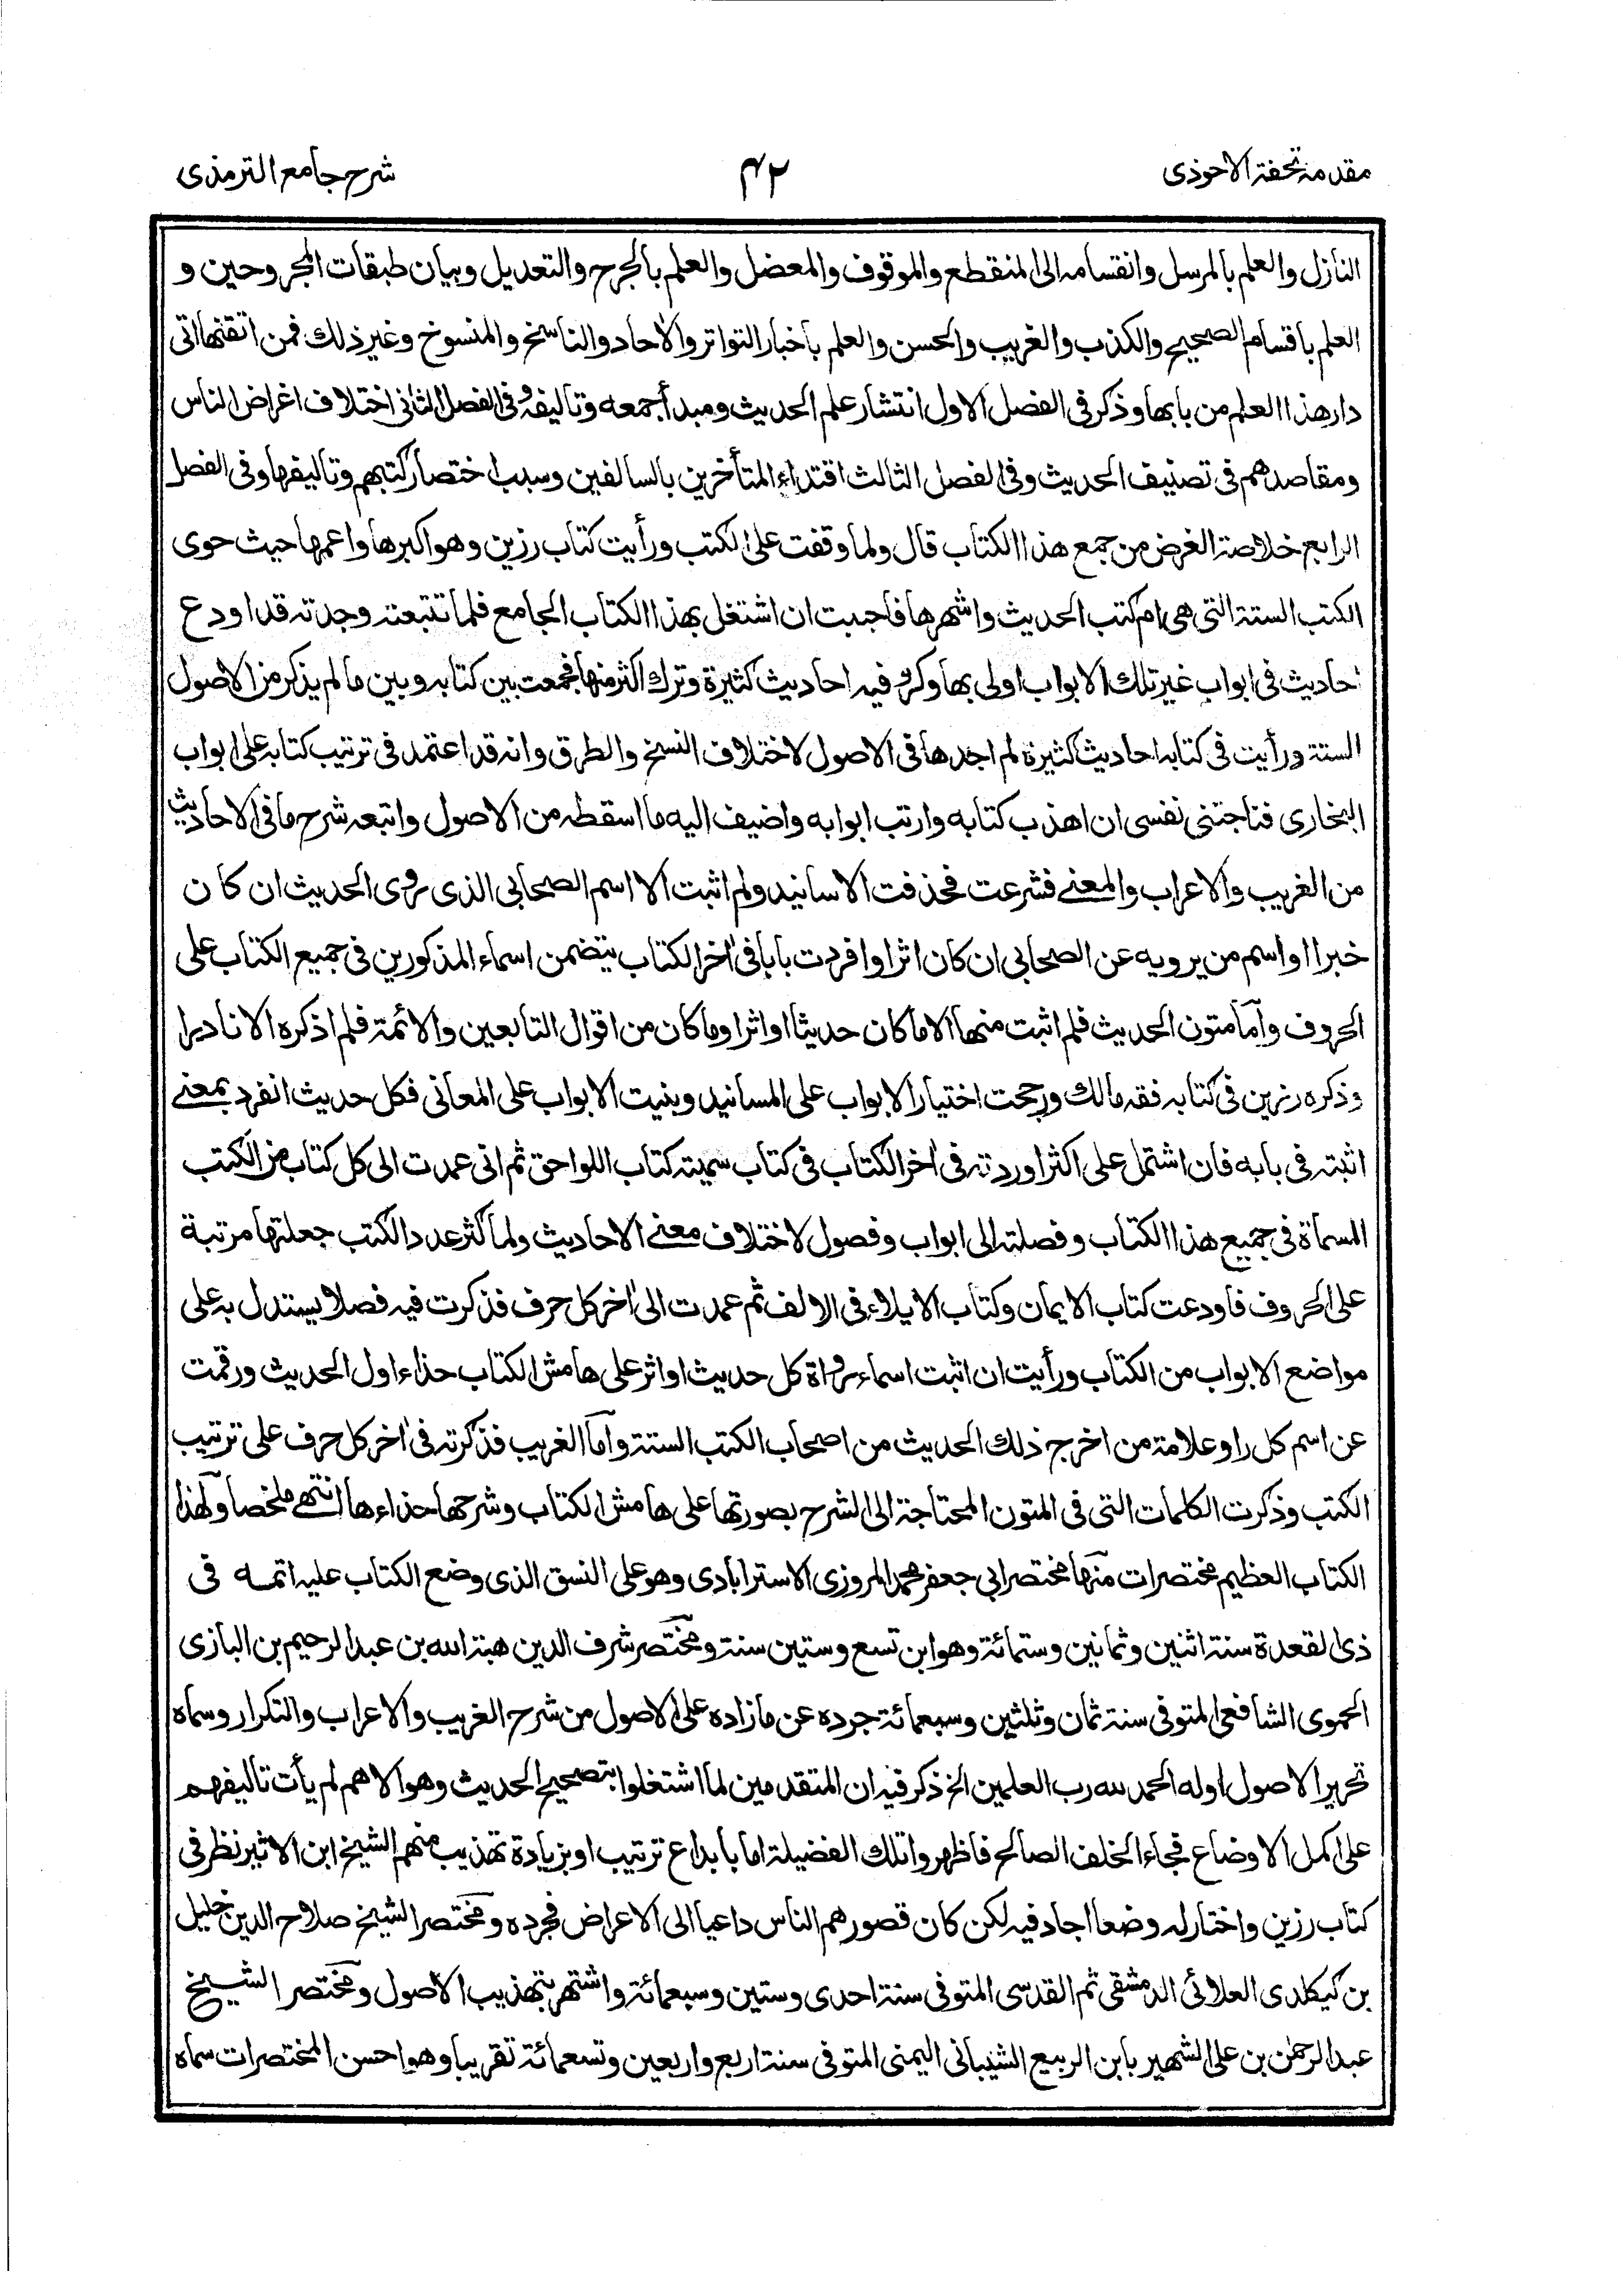 مقدمة تحفة الاحوذى ۴۲ شرح جامع الترمذى
النازل والعلم بالمرسل وانقسامه الى المنقطع والموقوف والمعضل والعلم بالجرح والتعديل وبيان طبقات المجروحين و
العلم باقسام الصحيح والكذب والغريب والحسن والعلم باخبار التواتر والآحاد والناسخ والمنسوخ وغير ذلك فمن اتقنها اتى
دار هذا العلم من بابها وذكر فى الفصل الاول انتشار علم الحديث ومبدأ جمعه وتاليفه وفى الفصل الثانى اختلاف اغراض الناس
ومقاصدهم فى تصنيف الحديث وفى الفصل الثالث اقتداء المتأخرين بالسالفين وسبب اختصار كتبهم وتاليفها وفى الفصل
الرابع خلاصة الغرض من جمع هذا الكتاب قال ولما وقفت على الكتب ورأيت كتاب رزين وهو اكبرها واعمها حيث حوى
الكتب الستة التى هى ام كتب الحديث واشهرها فاحببت ان اشتغل بهذا الكتاب الجامع فلما تتبعته وجدته قد اودع
احاديث فى ابواب غير تلك الابواب اولى بها وكرر فيه احاديث كثيرة وترك اكثر منها فجمعت بين كتابه وبين مالم يذكر من الاصول
الستة ورأيت فى كتابه احاديث كثيرة لم اجدها فى الاصول لاختلاف النسخ والطرق وانه قد اعتمد فى ترتيب كتابه على ابواب
البخارى فناجتنى نفسى ان اهذب كتابه وارتب ابوابه واضيف اليه ما اسقطه من الاصول واتبعه شرح ما فى الاحاديث
من الغريب والاعراب والمعنى فشرعت فحذفت الاسانيد ولم اثبت الا اسم الصحابى الذى روى الحديث ان كان
خبرا او اسم من يرويه عن الصحابى ان كان اثرا وافردت بابا فى آخر الكتاب يتضمن اسماء المذكورين فى جميع الكتاب على
الحروف واما متون الحديث فلم اثبت منها الا ما كان حديثا او اثرا وما كان من اقوال التابعين والائمة فلم اذكره الا نادرا
وذكره رزين فى كتابه فقه مالك ورجحت اختيار الابواب على المسانيد وبنيت الابواب على المعانى فكل حديث انفرد بمعنى
اثبته فى بابه فان اشتمل على اكثر اوردته فى آخر الكتاب فى كتاب سميته كتاب اللواحق ثم انى عمدت الى كل كتاب من الكتب
المسماة فى جميع هذا الكتاب وفصلته الى ابواب وفصول لاختلاف معنى الاحاديث ولما كثر عدد الكتب جعلتها مرتبة
على الحروف فاودعت كتاب الايمان وكتاب الايلاء فى الالف ثم عمدت الى آخر كل حرف فذكرت فيه فصلا يستدل به على
مواضع الابواب من الكتاب ورأيت ان اثبت اسماء رواة كل حديث او اثر على هامش الكتاب حذاء اول الحديث ورقمت
عن اسم كل راو علامة من اخرج ذلك الحديث من اصحاب الكتب الستة واما الغريب فذكرته فى آخر كل حرف على ترتيب
الكتب وذكرت الكلمات التى فى المتون المحتاجة الى الشرح بصورتها على هامش الكتاب وشرحها حذاءها انتهى ملخصا ولهذا
الكتاب العظيم مختصرات منها مختصر ابى جعفر محمد المروزى الاسترابادى وهو على النسق الذى وضع الكتاب عليه اتمه فى
ذى القعدة سنة اثنين وثمانين وستمائة وهو ابن تسع وستين سنة ومختصر شرف الدين هبة الله بن عبد الرحيم بن البازى
الحموى الشافعى المتوفى سنة ثمان وثلثين وسبعمائة جرده عن ما زاده على الاصول من شرح الغريب والاعراب والتكرار وسماه
تحرير الاصول اوله الحمد لله رب العلمين الخ ذكر فيه ان المتقدمين لما اشتغلوا بتصحيح الحديث وهو الاهم لم يأت تاليفهم
على اكمل الاوضاع فجاء الخلف الصالح فاظهروا تلك الفضيلة اما بابداع ترتيب او بزيادة تهذيب منهم الشيخ ابن الاثير نظر فى
كتاب رزين واختار له وضعا اجاد فيه لكن كان قصور همم الناس داعيا الى الاعراض فجرده ومختصر الشيخ صلاح الدين خليل
بن كيكلدى العلائى الدمشقى ثم القدسى المتوفى سنة احدى وستين وسبعمائة واشتهر بتهذيب الاصول ومختصر الشيخ
عبد الرحمن بن على الشهير بابن الربيع الشيبانى اليمنى المتوفى سنة اربع واربعين وتسعمائة تقريبا وهو احسن المختصرات سماه